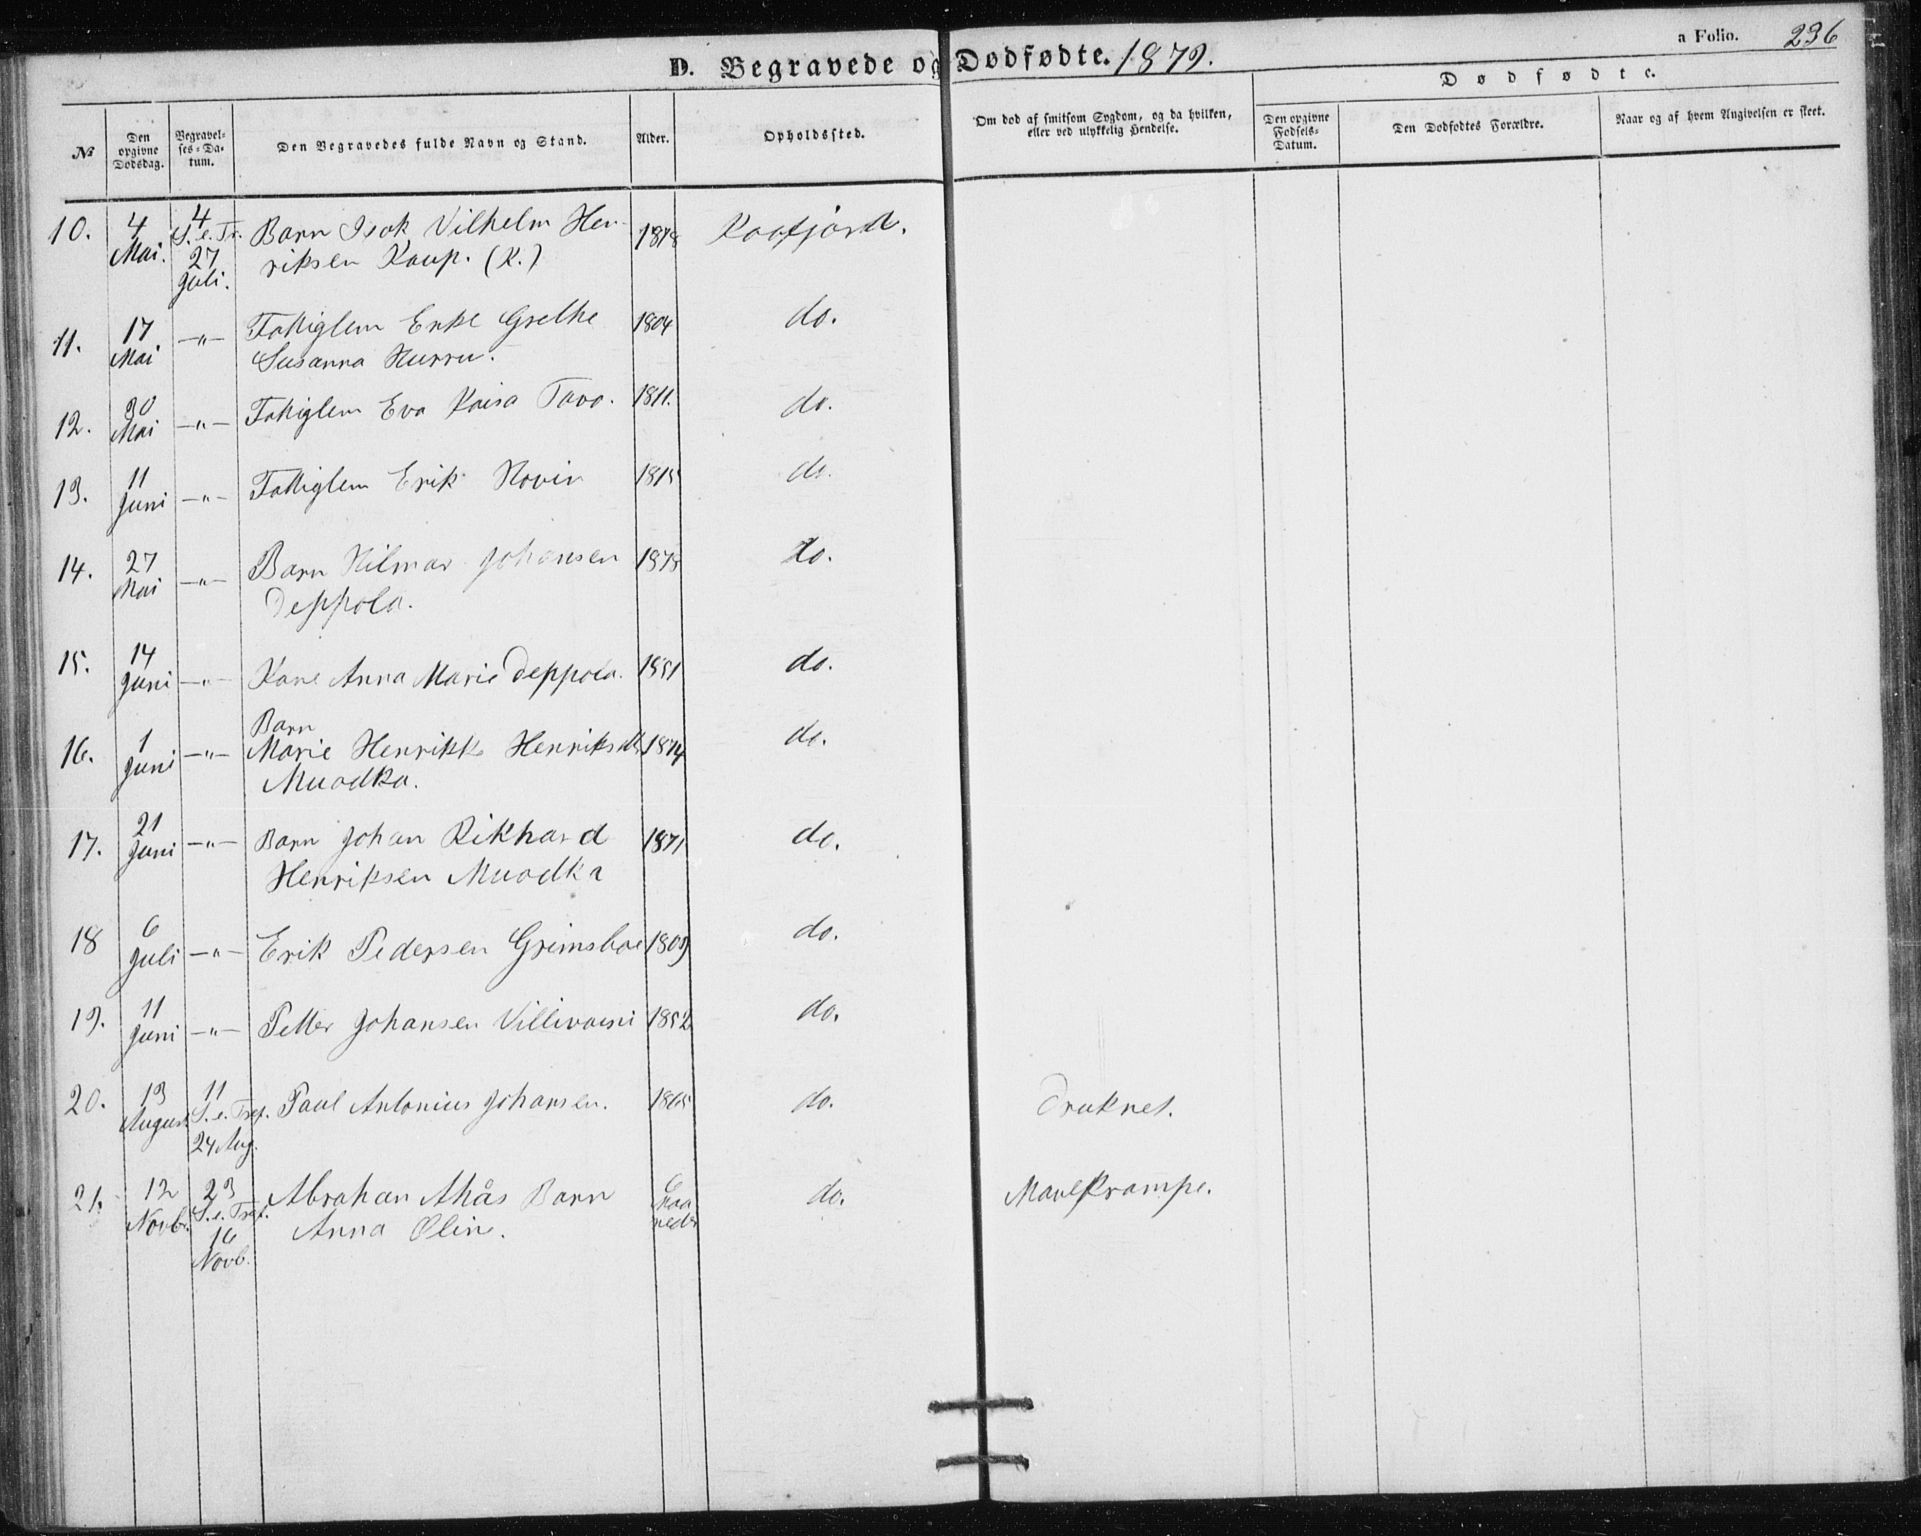 a Folio. 236
D. Begravede og Dødfødte. 1879.
Dødfødte.
№
Den opgivne Dødsdag.
Begravelses-Datum.
Den Begravedes fulde Navn og Stand.
Alder.
Opholdssted.
Om død af smitsom Sygdom, og da hvilken, eller ved ulykkelig Hendelse.
Den opgivne Fødsels-Datum.
Den Dødfødtes Forældre.
Naar og af hvem Angivelsen er skeet.
10. 4 Mai. 4 S. e. Tr. 27 Juli. Barn Isak Vilhelm Hen- 1878 Kaafjord.
riksen Kaup. (K.)
11. 17 Mai -"- Fattiglem Enke Grethe 1804 do.
Susanna Hurru.
12. 30 Mai -"- Fattiglem Eva Kaisa Tavo. 1811. do.
13. 11 Juni -"- Fattiglem Erik Hovin 1815 do.
14. 27 Mai -"- Barn Hilmar Johansen 1878 do.
Deppola.
15. 14 Juni -"- Kone Anna Marie Deppola. 1851 do.
Barn
16. 1 Juni -"- Marie Henrikke Henriksdtr 1874 do.
Muodka.
17. 21 Juni -"- Barn Johan Rikhard 1871 do.
Henriksen Muodka
18 6 Juli -"- Erik Pedersen Grimsboe 1809 do.
19. 11 Juni -"- Petter Johansen Villivaini 1852 do.
20. 13 August 11 S. e. Tref. 24 Aug. Paul Antonius Johansen. 1865 do. Druknet.
21. 12 Novb. 23 S. e. Tref. 16 Novb. Abraham Ahås Barn 6 Maaneder do. Maulkrampe.
Anna Oline.